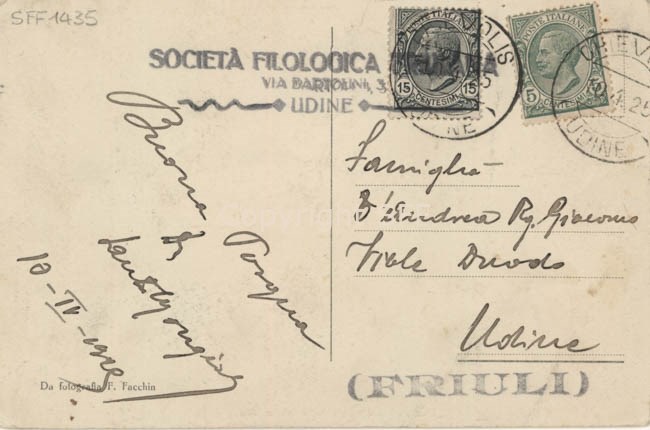 SFF1435
SOCIETÀ FILOLOGICA
VIA BARTOLINI, 3
UDINE
POSTE ITALIANE
15 CENTESIMI 15
POSTE ITALIANE
5 CENTESIMI
UDINE
Buona
Pasqua
10-IV-1925
Famiglia
D'Andrea Rg. Giacomo
Viale Duodo
Udine
(FRIULI)
Da fotografia F. Facchin